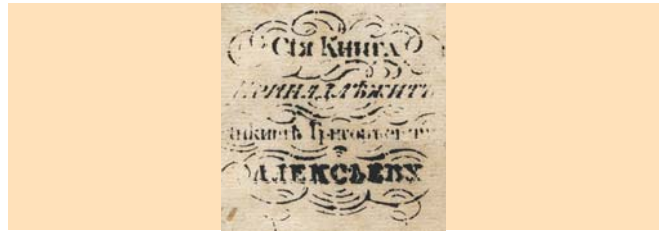 Сія Книга
Принадлѣжитъ
Никитѣ Григорьевичу
Алексѣеву